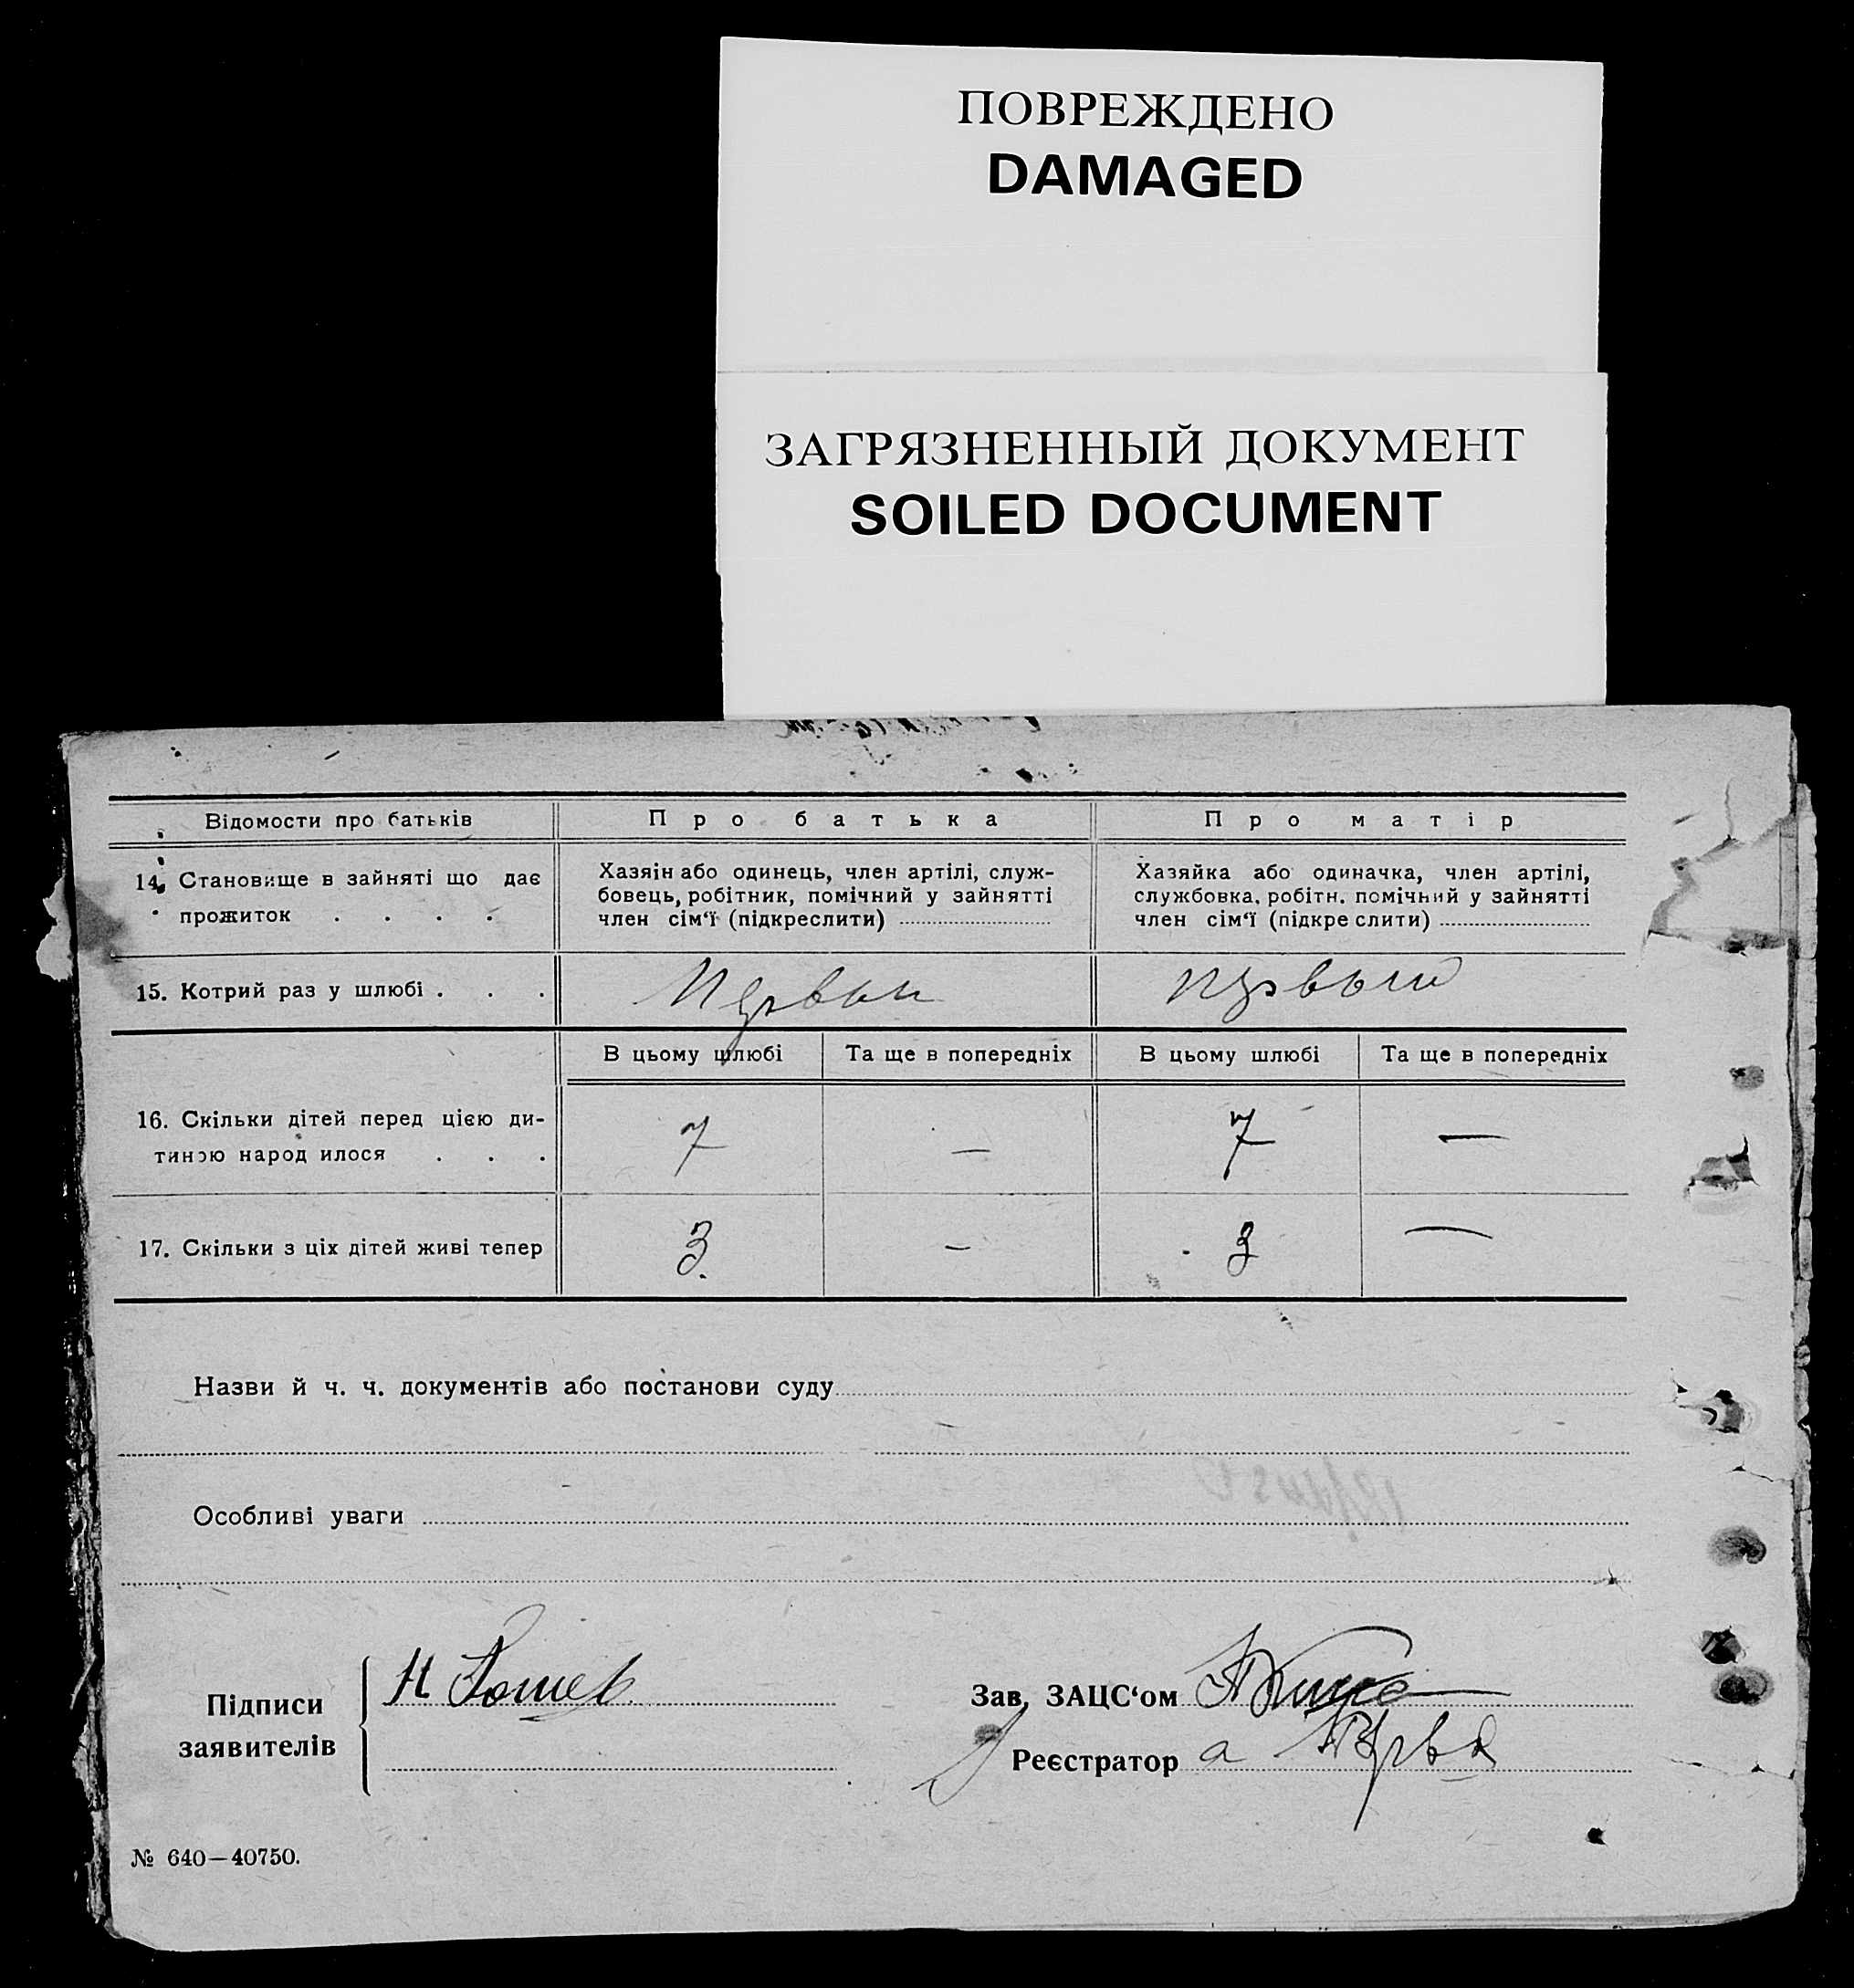 ПОВРЕЖДЕНО
DAMAGED
ЗАГРЯЗНЕННЫЙ ДОКУМЕНТ
SOILED DOCUMENT
Відомости про батьків Про батька Про матір
14. Становище в зайняті що дає
прожиток . . . .
Хазяїн або одинець, член артілі, служ-
бовець, робітник, помічний у зайнятті
член сім‘ї (підкреслити)
Хазяйка або одиначка, член артілі,
службовка, робітн. помічний у зайнятті
член сім‘ї (підкреслити)
15. Котрий раз у шлюбі . . . Первый первый
В цьому шлюбі Та ще в попередніх В цьому шлюбі Та ще в попередніх
16. Скільки дітей перед цією ди-
тиною народилося . . . 7 — 7 —
17. Скільки з ціх дітей живі тепер 3 — 3 —
Назви й ч. ч. документів або постанови суду
Особливі уваги
Підписи
заявителів
Н
Зав, ЗАЦС‘ом
Реєстратор
№ 640—40750.